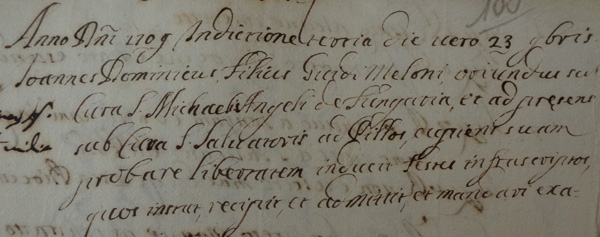 100
Anno Dñi 1709 Indictione tertia die vero 23 9bris
Ioannes Dominicus, Filius Guidi Meloni, oriundus su
Cura S. Michaelis Angeli de Fungatia, et ad presens
sub Cura S. Salvatoris ad Pillos, cupiens suam
probare libertatem induxit Testes infrascriptos,
quos instat, recipi, et admitti, et mand avi exa-